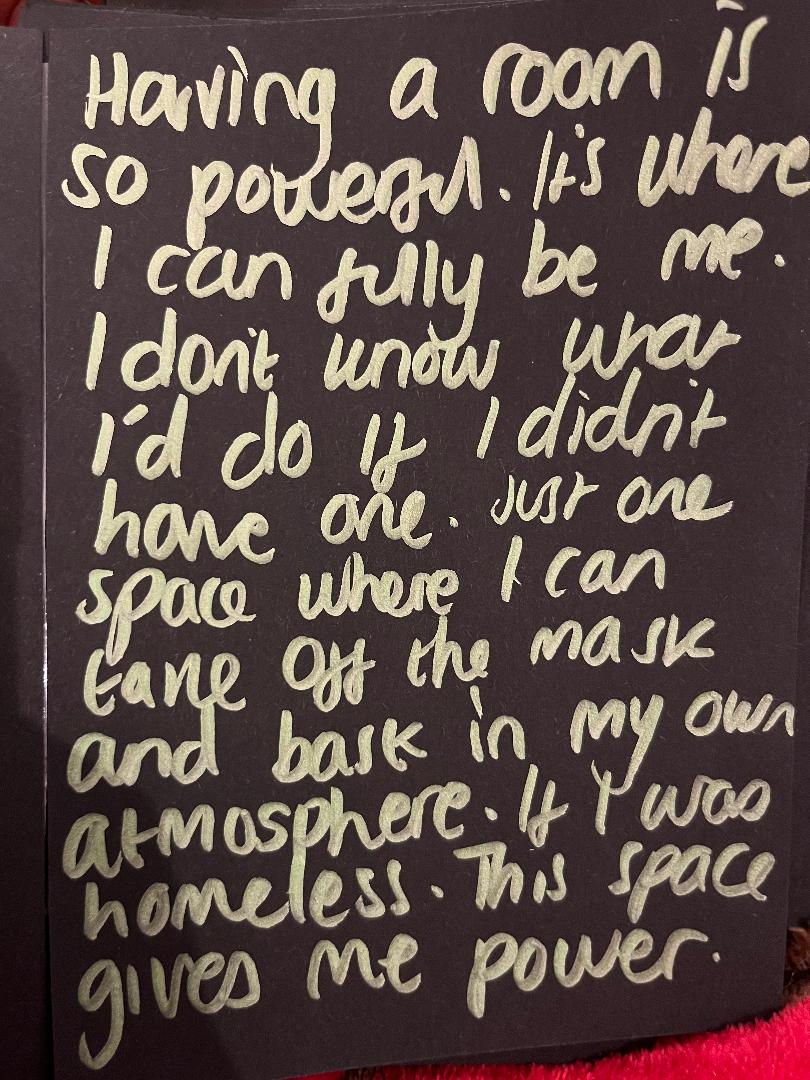 Having a room is
so powerful. It's where
I can fully be me.
I don't know what
I'd do If I didn't
have one. Just one
space where I can
take off the mask
and bask in my own
atmosphere. If I was
homeless. This space
gives me power.